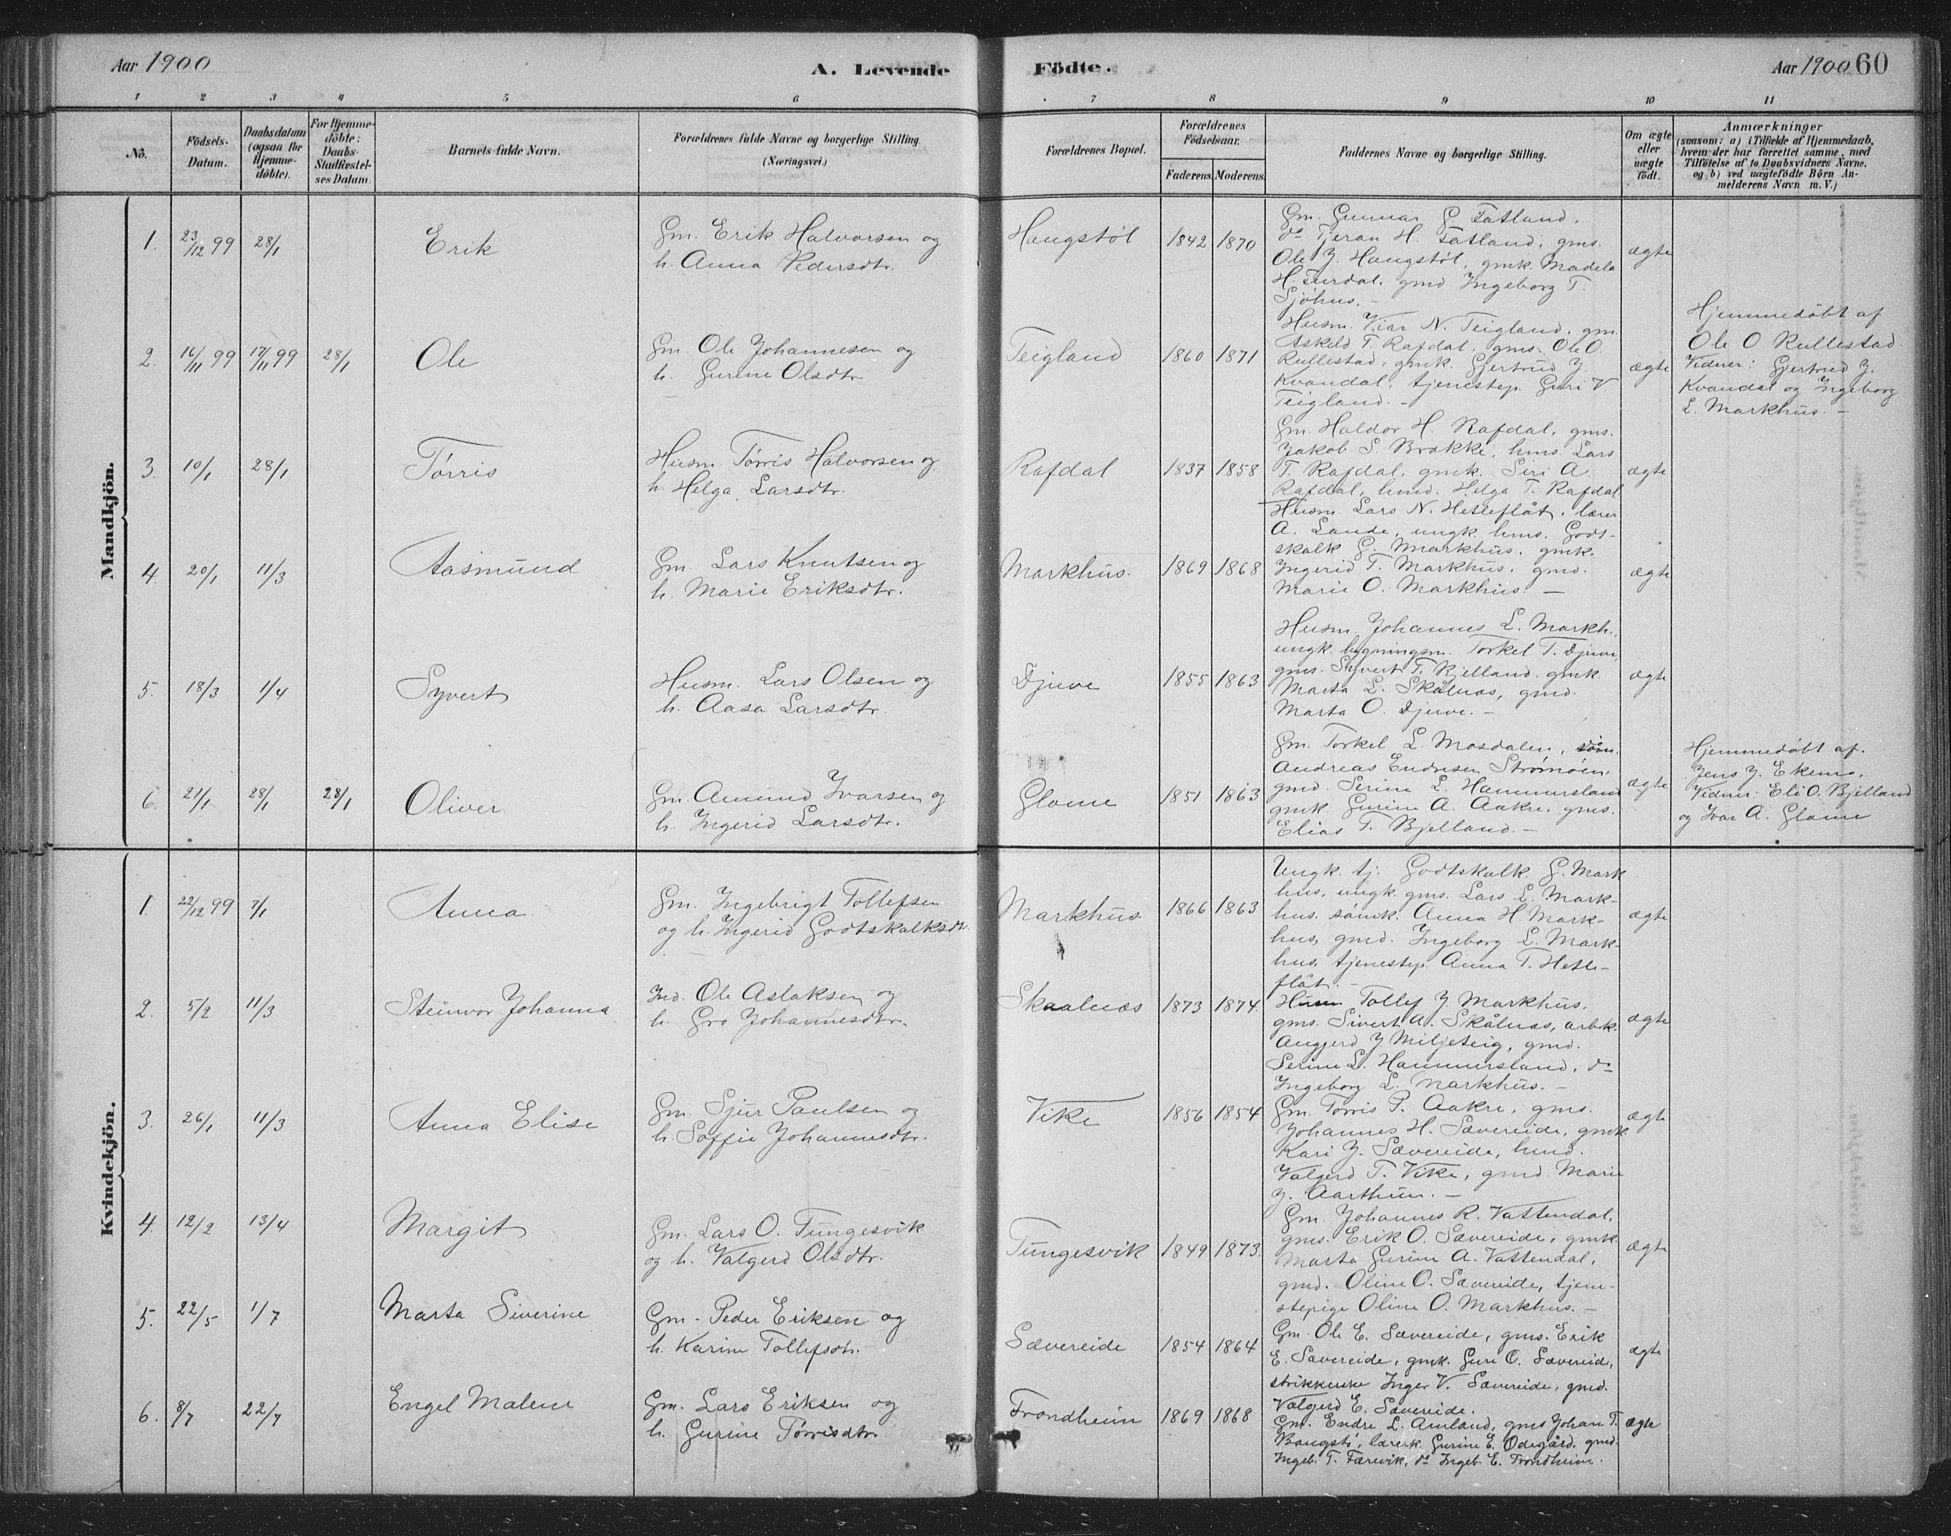 Aar 1900
A. Levende
Födte.
Aar 1900
60
1 2 3 4 5 6 7 8 9 10 11
No.
Födsels-
Datum.
Daabsdatum
(ogsaa for
Hjemme-
döbte).
For Hjemme-
döbte:
Daabs-
Stadfæstel-
ses Datum.
Barnets fulde Navn.
Forældrenes fulde Navne og borgerlige Stilling.
(Næringsvei.)
Forældrenes Bopæl.
Forældrenes
Födselsaar.
Faderens. Moderens.
Faddernes Navne og borgerlige Stilling.
Om ægte
eller
uægte
födt.
Anmærkninger
(saasom: a) i Tilfælde af Hjemmedaab,
hvem der har forrettet samme, med
Tilföielse af to Daabsvidners Navne,
og b) ved uægtefödte Börn An-
melderens Navn m. V.)
Mandkjön.
1. 23/12 99 28/1 Erik
Gm. Erik Halvorsen og
h. Anna Pedersdtr.
Haugstøl 1842 1870
Gm. Gunnar G. Fatland,
do Tjeran H. Fatland, gms.
Ole J. Haugstøl, gmk. Madela
H. Furdal, gmd Ingeborg T.
Sjøhus. –
ægte
2. 16/11 99 17/11 99 28/1 Ole
Gm. Ole Johannesen og
h. Gurine Olsdtr.
Teigland 1860 1871
Husm. Viar N. Teigland, gm.
Askild T. Rafdal, gms. Ole O.
Rullestad, gmk. Gjertrud J.
Kvandal, tjenestep. Guri V.
Teigland. –
ægte
Hjemmedøbt af
Ole O Rullestad
Vidner: Gjertrud J.
Kvandal og Ingeborg
L. Markhus. –
3. 10/1 28/1 Tørris
Husm. Tørris Halvorsen og
h. Helga Larsdtr.
Rafdal 1837 1858
Gm. Haldor H. Rafdal, gms.
Jakob S. Brokke, hms. Lars
T. Rafdal, gmk. Siri A.
Rafdal, hmd. Helga T. Rafdal
ægte
4. 20/1 11/3 Aasmund
Gm. Lars Knutsen og
h. Marie Eriksdtr.
Markhus. 1869 1868
Husm. Lars N. Hetleflåt, lærer
A. Lande, ungk. hms. Godt-
skalk G. Markhus, gmk.
Ingerid T. Markhus, gmd.
Marie O. Markhus. –
ægte
5. 18/3 1/4 Syvert
Husm. Lars Olsen og
h. Aasa Larsdtr.
Djuve 1855 1863
Husm. Johannes L. Markh.,
ungk. bygningsm. Torkel T. Djuve,
gms. Syvert T. Bjelland, gmk
Marta L. Skålnæs, gmd.
Marta O. Djuve. –
ægte
6. 21/1 28/1 28/1 Oliver
Gm. Amund Ivarsen og
h. Ingerid Larsdtr.
Glome 1851 1863
Gm. Torkel L. Mosdalen, søn.
Andreas Endresen Strømøen,
gmd. Serine L. Hammersland
gmk. Gurine A. Aakre, gms.
Elias T. Bjelland. –
ægte
Hjemmedøbt af.
Jens J. Ekemo,
Vidner: Eli O. Bjelland
og Ivar A. Glome
Kvindekjön.
1. 22/12 99 7/1 Anna
Gm. Ingebrigt Tollefsen
og h. Ingerid Godtskalksdtr.
Markhus 1866 1863
Ungk. tj. Godtskalk G. Mark
hus, ungk. gms. Lars L. Mark-
hus, sønsk. Anna H Mark-
hus, gmd. Ingeborg L. Mark-
hus, tjenestep. Anna T. Hetle-
flåt. –
ægte
2. 5/2 11/3 Steinvor Johanna
Ind. Ole Aslaksen og
h. Gro Johannesdtr.
Skaalnæs 1873 1874.
Husm Tollef J. Markhus,
gms. Sivert A. Skålnæs, arbk.
Angjerd J. Miljeteig, gmd.
Serine L. Hammersland, do
Ingeborg L. Markhus. –
ægte
3. 26/1 11/3 Anna Elise
Gm. Sjur Paulsen og
h. Soffie Johannesdtr.
Vike 1856 1854
Gm. Tørris P. Aakre, gms.
Johannes H. Sævereide, gmk.
Kari J. Sævereide, hmd.
Valgerd T. Vike, gmd. Marie
J. Aarthun. –
ægte
4. 12/2 13/4 Margit
Gm. Lars O. Tungesvik
og h. Valgerd Olsdtr.
Tungesvik 1849 1873.
Gm. Johannes R. Vattendal,
gms. Erik O. Sævereide, gmk
Marta Gurine A. Vattendal,
gmd. Oline O. Sævereide, tjene-
stepige Oline O. Markhus. –
ægte
5. 22/5 1/7 Marta Siverine
Gm. Peder Eriksen og
h. Karine Tollefsdtr.
Sævereide 1854 1864
Gm. Ole E. Sævereide, gms. Erik
E. Sævereide, gmk. Guri O. Sævereide,
strikkerske Inger V. Sævereide, gmd.
Valgerd E. Sævereide.
ægte
6. 8/7 22/7 Engel Malene
Gm. Lars Eriksen og
h. Gurine Tørrisdtr.
Trondheim 1869 1868
Gm. Endre L. Amland, gms Johan T.
Baugstø, lærerk. Gurine E. Ødegård, gmd.
Ingeb. T. Færevik, do Ingeb. E. Trondheim.
ægte